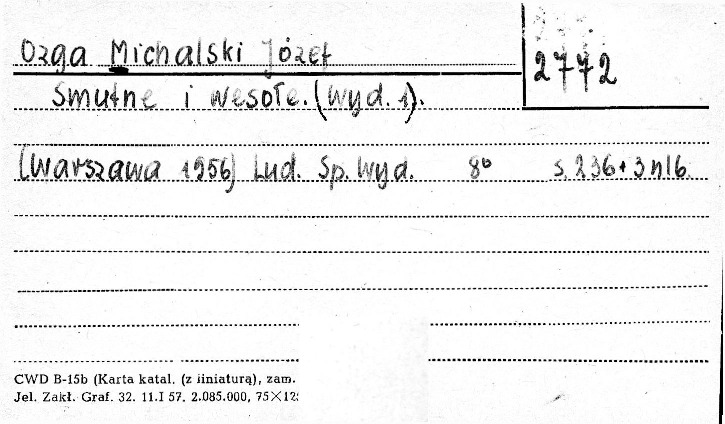 Ozga Michalski Józef
2772
Smutne i wesołe. (Wyd. 1).
(Warszawa 1956) Lud. Sp. Wyd. 8° s. 236+3 nlb.
CWD B-15b (Karta katal. (z liniaturą), zam.
Jel. Zakł. Graf. 32. 11.I 57. 2.085.000, 75×12